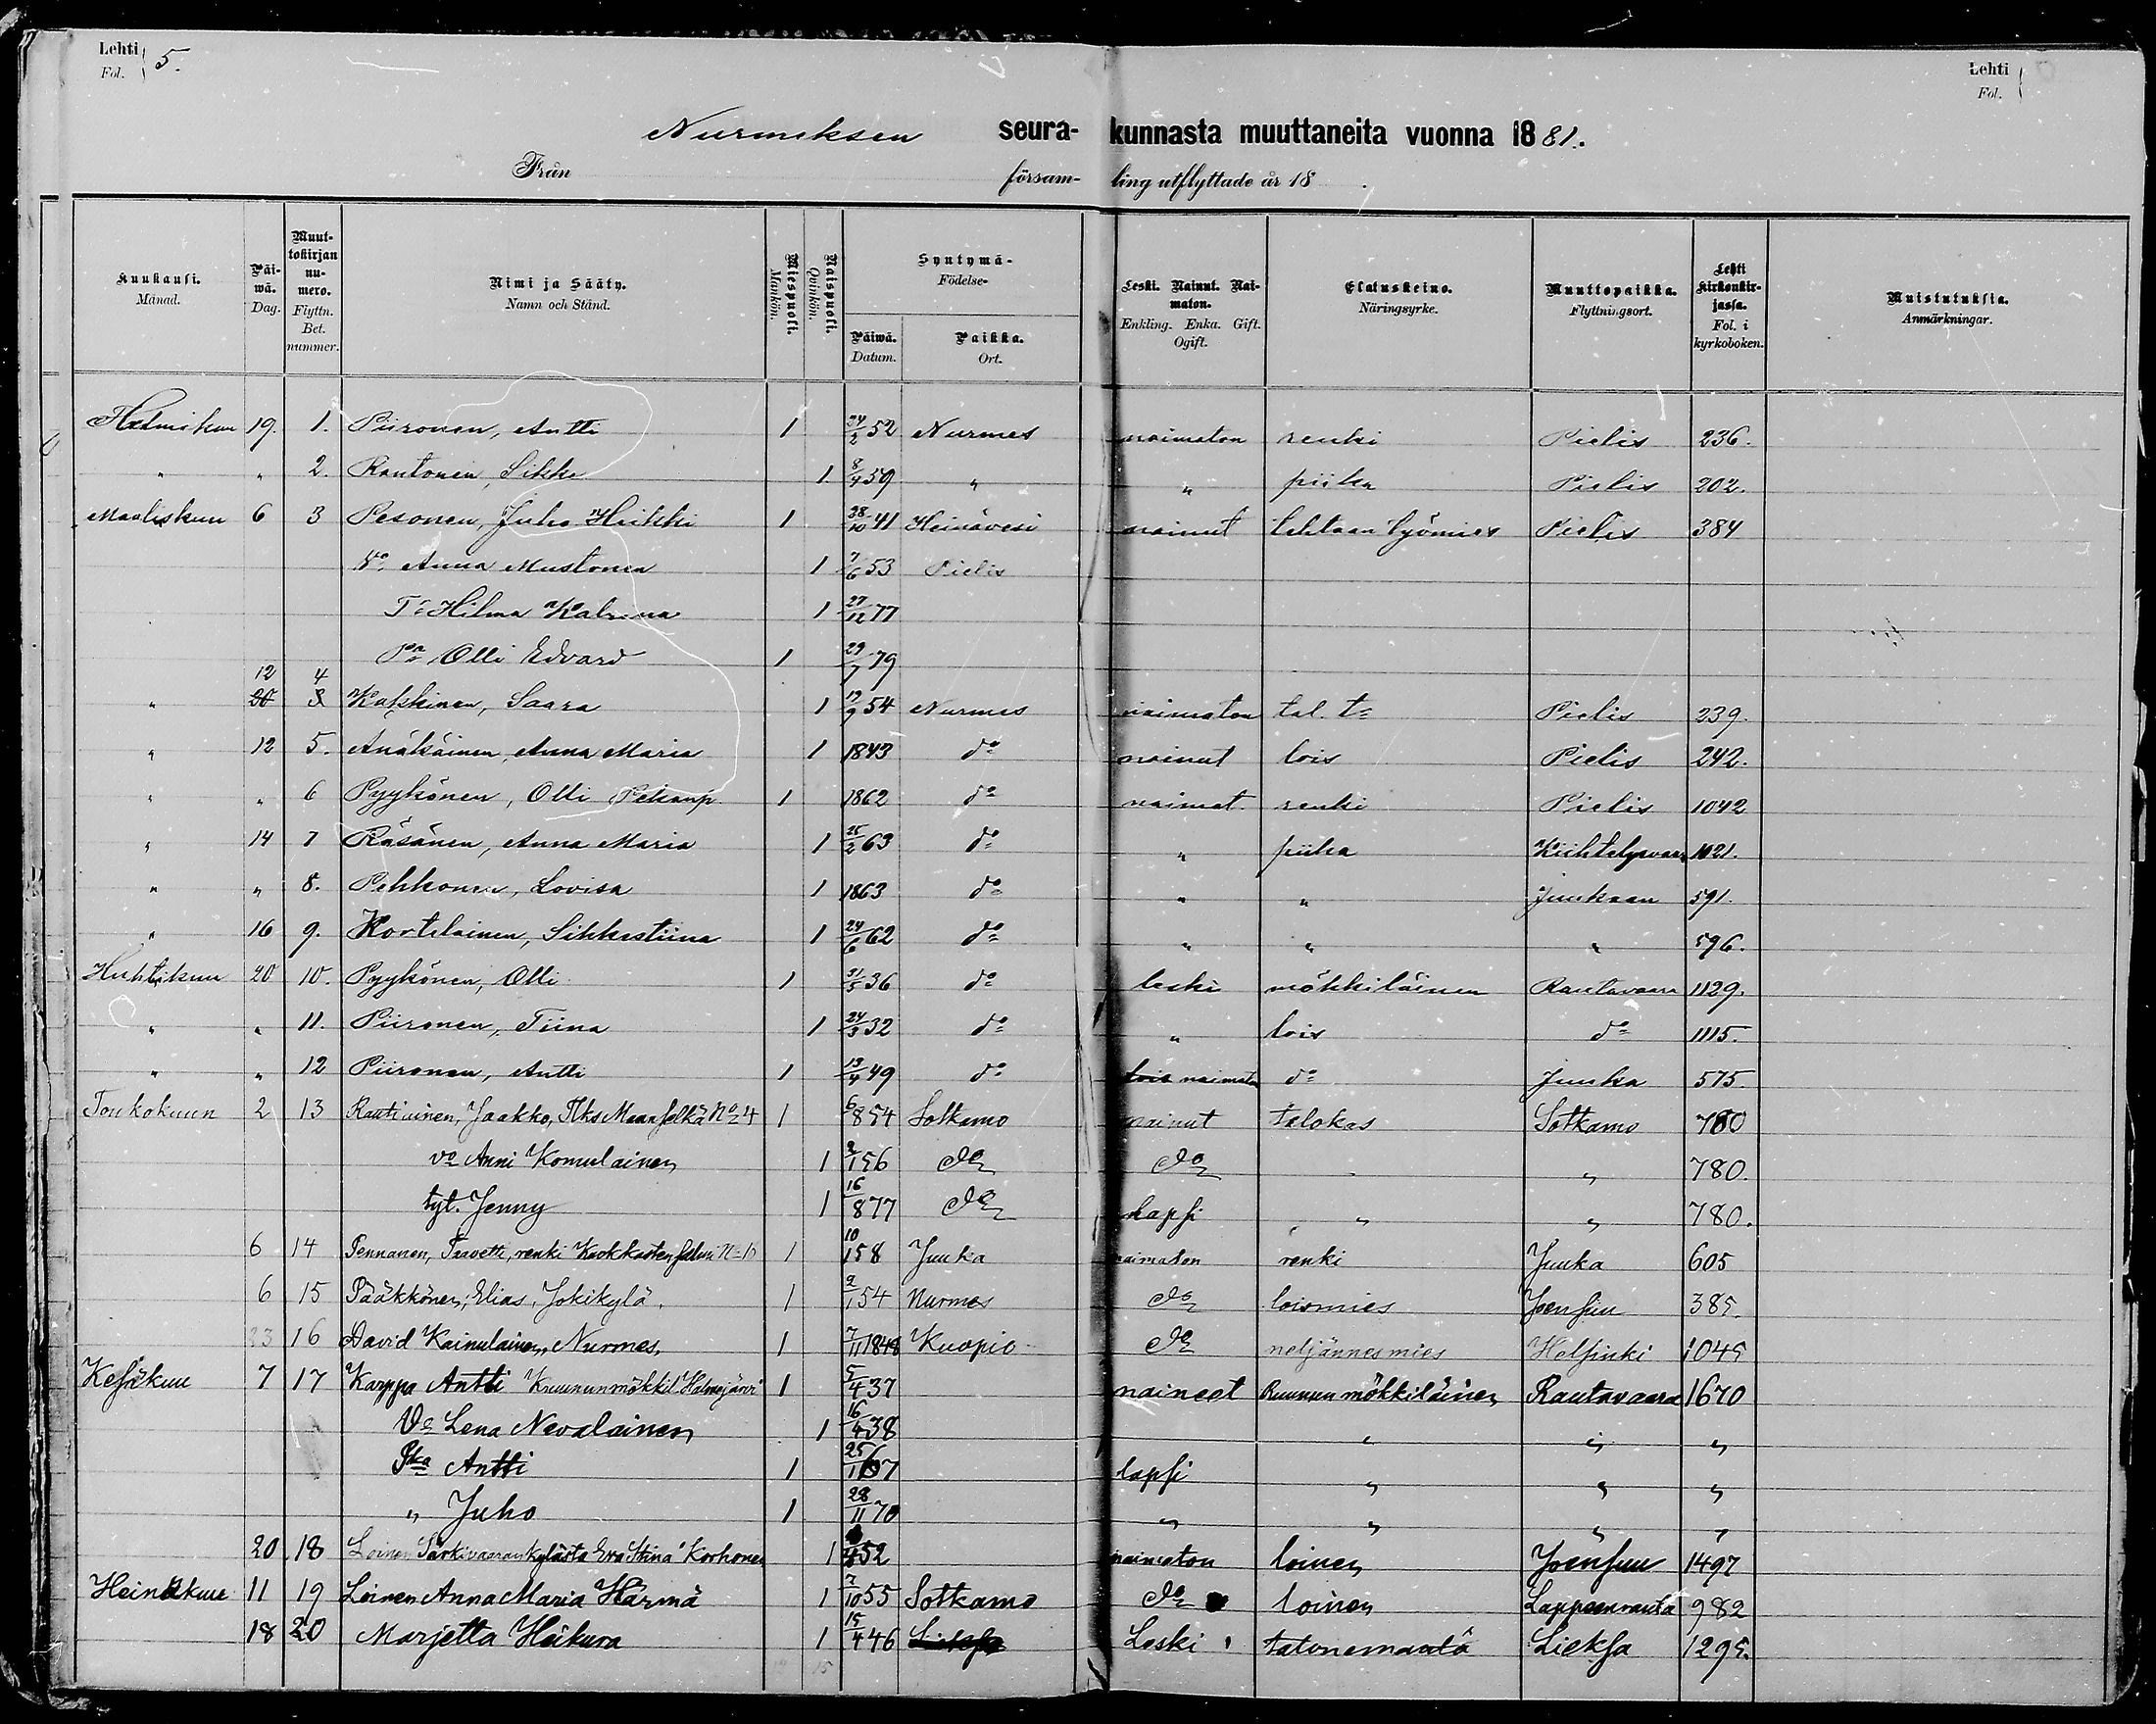 Lehti Fol. 5.
Lehti Fol.
Nurmeksen seura- kunnasta muuttaneita vuonna 1881.
Från försam- ling utflyttade år 18 .
Kuukausi. Månad. Päi- wä. Dag. Muut- tokirjan nu- mero. Flyttn. Bet. nummer. Nimi ja Sääty. Namn och Stånd. Miespuoli. Mankön. Naispuoli. Qvinkön. Syntymä- Födelse- Päiwä. Datum. Paikka. Ort. Leski. Nainut. Nai- maton. Enkling. Enka. Gift. Ogift. Elatuskeino. Näringsyrke. Muuttopaikka. Flyttningsort. Lehti kirkonkir- jassa. Fol. i kyrkoboken. Muistutuksia. Anmärkningar.
Helmikuu 19. 1. Piironen, Antti 1 24/2 52 Nurmes naimaton renki Pielis 236.
" " 2. Rautonen, Sikke 1 8/4 59 " " piika Pielis 202.
Maaliskuu 6 3 Pesonen, Juho Heikki 1 28/10 41 Heinävesi nainut tehtaan työmies Pielis 384
Vo. Anna Mustonen 1 7/6 53 Pielis
Tr Hilma Katrina 1 27/12 77
Pa Olli Edvard 1 29/7 79
" 12 4 Kakkinen, Saara 1 19/9 54 Nurmes naimaton tal. tr Pielis 239.
" 12 5. Anäkäinen, Anna Maria 1 1843 do nainut lois Pielis 242.
" " 6 Pyykönen, Olli Pekanp 1 1862 do naimat. renki Pielis 1042
" 14 7 Räsänen, Anna Maria 1 25/2 63 do " piika Kiihtelysvaara 1021.
" " 8. Pehkonen, Lovisa 1 1863 do " " Juukaan 591.
" 16 9. Kortelainen, Sihkestiina 1 24/6 62 do " " " 596.
Huhtikuu 20 10. Pyykönen, Olli 1 31/5 36 do leski mökkiläinen Rautavaara 1129.
" " 11. Piironen, Tiina 1 24/3 32 do " lois do 1115.
" " 12 Piironen, Antti 1 13/4 49 do lois naimaton do Juuka 575.
Toukokuun 2 13 Rautiainen, Jaakko, Tlks Maanselkä No 4 1 6/8 54 Sotkamo nainut talokas Sotkamo 780
vo Anni Komulainen 1 2/1 56 do do " 780.
tyt. Jenny 1 16/8 77 do lapsi " " 780.
6 14 Pennanen, Taavetti, renki Kuokkastenjalmi No 10 1 10/1 58 Juuka naimaton renki Juuka 605
6 15 Pääkkönen, Elias, Jokikylä. 1 2/1 54 Nurmes do loismies Joensuu 385.
23 16 David Kainulainen, Nurmes, 1 7/11 1848 Kuopio do neljännesmies Helsinki 1045
Kesäkuu 7 17 Karppa Antti Kruununmökkil Halmejärvi 1 5/4 37 naineet Ruunun mökkiläinen Rautavaara 1670
Vo Lena Nevalainen 1 16/4 38 " " "
Pka Antti 1 25/1 67 lapsi " " "
" Juho 1 28/11 70 " " " "
20 18 Loinen Särkivaarankylästä Eva Stina Korhonen 1 52 naimaton loinen Joensuu 1497
Heinäkuu 11 19 Loinen Anna Maria Härmä 1 7/10 55 Sotkamo do loinen Lappeenranta 982
18 20 Marjetta Heikura 1 15/4 46 Leski talonemäntä Lieksa 1295.